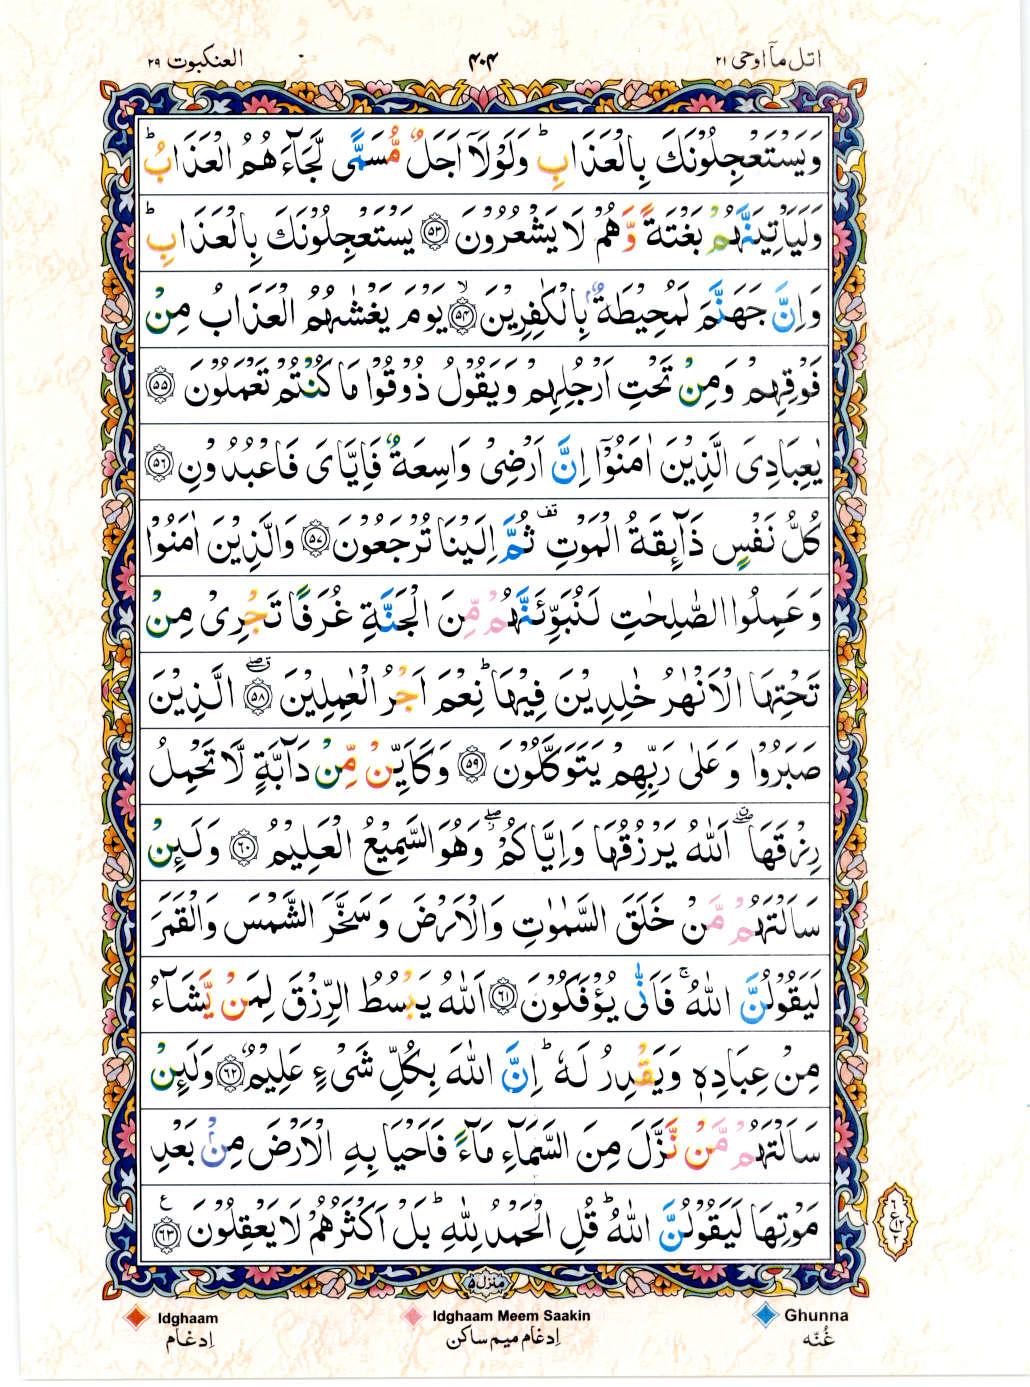 اتل مآ اوحی ۲۱
۴۰۴
العنکبوت ۲۹
وَيَسْتَعْجِلُوْنَكَ بِالْعَذَابِ ؕ وَلَوْلَاۤ اَجَلٌ مُّسَمًّى لَّجَآءَهُمُ الْعَذَابُ ؕ
وَلَيَاْتِيَنَّهُمْ بَغْتَةً وَّهُمْ لَا يَشْعُرُوْنَ ۝۵۳ يَسْتَعْجِلُوْنَكَ بِالْعَذَابِ ؕ
وَاِنَّ جَهَنَّمَ لَمُحِيْطَةٌۢ بِالْكٰفِرِيْنَ ۙ۝۵۴ يَوْمَ يَغْشٰىهُمُ الْعَذَابُ مِنْ
فَوْقِهِمْ وَمِنْ تَحْتِ اَرْجُلِهِمْ وَيَقُوْلُ ذُوْقُوْا مَا كُنْتُمْ تَعْمَلُوْنَ ۝۵۵
يٰعِبَادِىَ الَّذِيْنَ اٰمَنُوْۤا اِنَّ اَرْضِىْ وَاسِعَةٌ فَاِيَّاىَ فَاعْبُدُوْنِ ۝۵۶
كُلُّ نَفْسٍ ذَآئِقَةُ الْمَوْتِ قف ثُمَّ اِلَيْنَا تُرْجَعُوْنَ ۝۵۷ وَالَّذِيْنَ اٰمَنُوْا
وَعَمِلُوا الصّٰلِحٰتِ لَنُبَوِّئَنَّهُمْ مِّنَ الْجَنَّةِ غُرَفًا تَجْرِىْ مِنْ
تَحْتِهَا الْاَنْهٰرُ خٰلِدِيْنَ فِيْهَا ؕ نِعْمَ اَجْرُ الْعٰمِلِيْنَ ۝۵۸ الَّذِيْنَ
صَبَرُوْا وَعَلٰى رَبِّهِمْ يَتَوَكَّلُوْنَ ۝۵۹ وَكَاَيِّنْ مِّنْ دَآبَّةٍ لَّا تَحْمِلُ
رِزْقَهَا اَللّٰهُ يَرْزُقُهَا وَاِيَّاكُمْ ۖ وَهُوَ السَّمِيْعُ الْعَلِيْمُ ۝۶۰ وَلَئِنْ
سَاَلْتَهُمْ مَّنْ خَلَقَ السَّمٰوٰتِ وَالْاَرْضَ وَسَخَّرَ الشَّمْسَ وَالْقَمَرَ
لَيَقُوْلُنَّ اللّٰهُ ۚ فَاَنّٰى يُؤْفَكُوْنَ ۝۶۱ اَللّٰهُ يَبْسُطُ الرِّزْقَ لِمَنْ يَّشَآءُ
مِنْ عِبَادِهٖ وَيَقْدِرُ لَهٗ ؕ اِنَّ اللّٰهَ بِكُلِّ شَىْءٍ عَلِيْمٌ ۝۶۲ وَلَئِنْ
سَاَلْتَهُمْ مَّنْ نَّزَّلَ مِنَ السَّمَآءِ مَآءً فَاَحْيَا بِهِ الْاَرْضَ مِنْۢ بَعْدِ
مَوْتِهَا لَيَقُوْلُنَّ اللّٰهُ ؕ قُلِ الْحَمْدُ لِلّٰهِ ؕ بَلْ اَكْثَرُهُمْ لَا يَعْقِلُوْنَ ۝۶۳ ع
منزل ۵
Ghunna
غُنّه
Idghaam Meem Saakin
اِدغام ميم ساكن
Idghaam
اِدغام